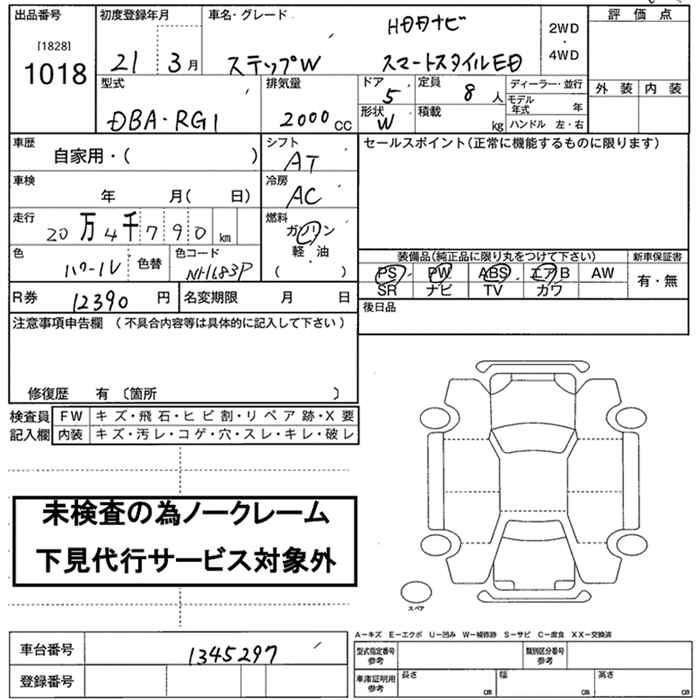 出品番号 初度登録年月 車名・グレード 2WD ・ 4WD 評価点
[1828]
1018
21 3月 ステップW HDDナビ
スマートスタイルED
外装 内装
型式 排気量 ドア 定員 ディーラー・並行
DBA・RG1 2000cc 5 8人 モデル年式 年
形状 積載
W kg ハンドル 左・右
車歴 シフト セールスポイント(正常に機能するものに限ります)
自家用・( ) AT
車検 冷房
年 月( 日) AC
走行 燃料
20万4千790km ガソリン
軽・油
( )
色 色替 色コード
NH683P
装備品(純正品に限り丸をつけて下さい) 新車保証書
PS PW ABS エアB AW 有・無
SR ナビ TV カワ
R券 12390円 名変期限 月 日 後日品
注意事項申告欄 (不具合内容等は具体的に記入して下さい)
修復歴 有 〔箇所 〕
検査員 FW キズ・飛石・ヒビ割・リペア跡・X要
記入欄 内装 キズ・汚レ・コゲ・穴・スレ・キレ・破レ
未検査の為ノークレーム
下見代行サービス対象外
スペア
A-キズ E-エクボ U-凹み W-補修跡 S-サビ C-腐食 XX-交換済
車台番号 1345297 型式指定番号 参考 類別区分番号 参考
登録番号 車庫証明用 参考 長さ cm 幅 cm 高さ cm